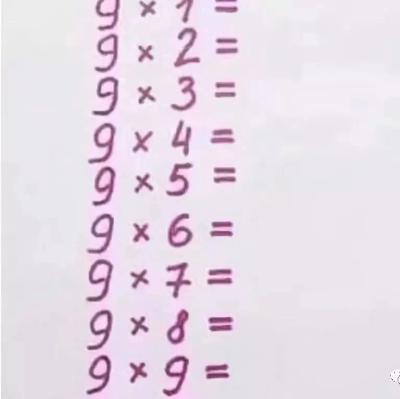 9 × 1 =
9 × 2 =
9 × 3 =
9 × 4 =
9 × 5 =
9 × 6 =
9 × 7 =
9 × 8 =
9 × 9 =